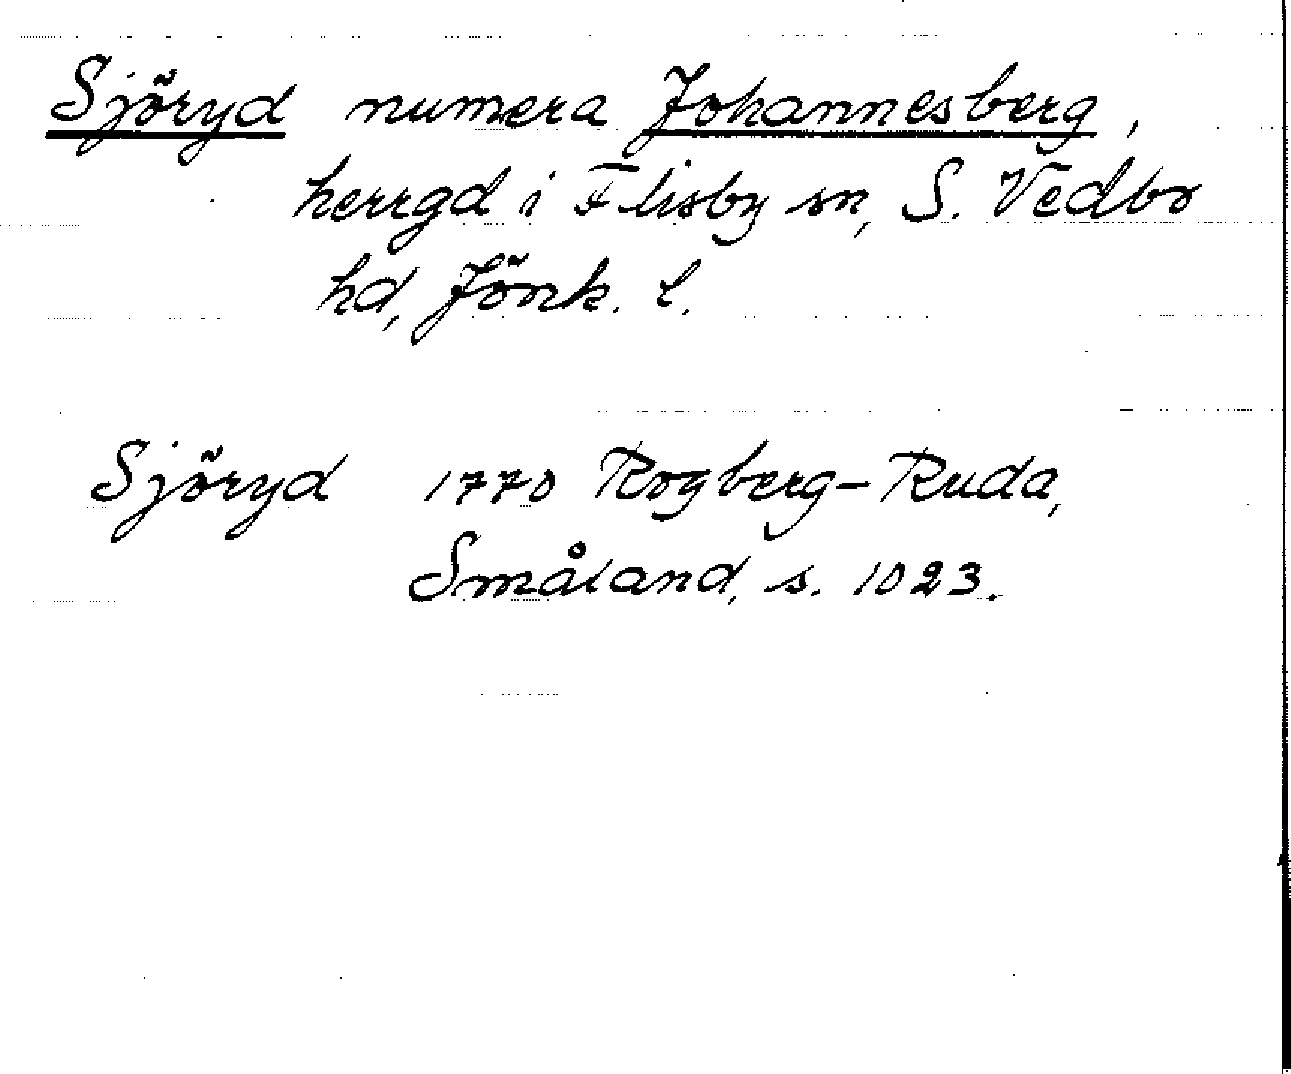 Sjöryd numera Johannesberg,
herrgd i Flisby sn, S. Vedbo
hd, Jönk. l.
Sjöryd 1770 Rogberg-Ruda,
Småland, s. 1023.